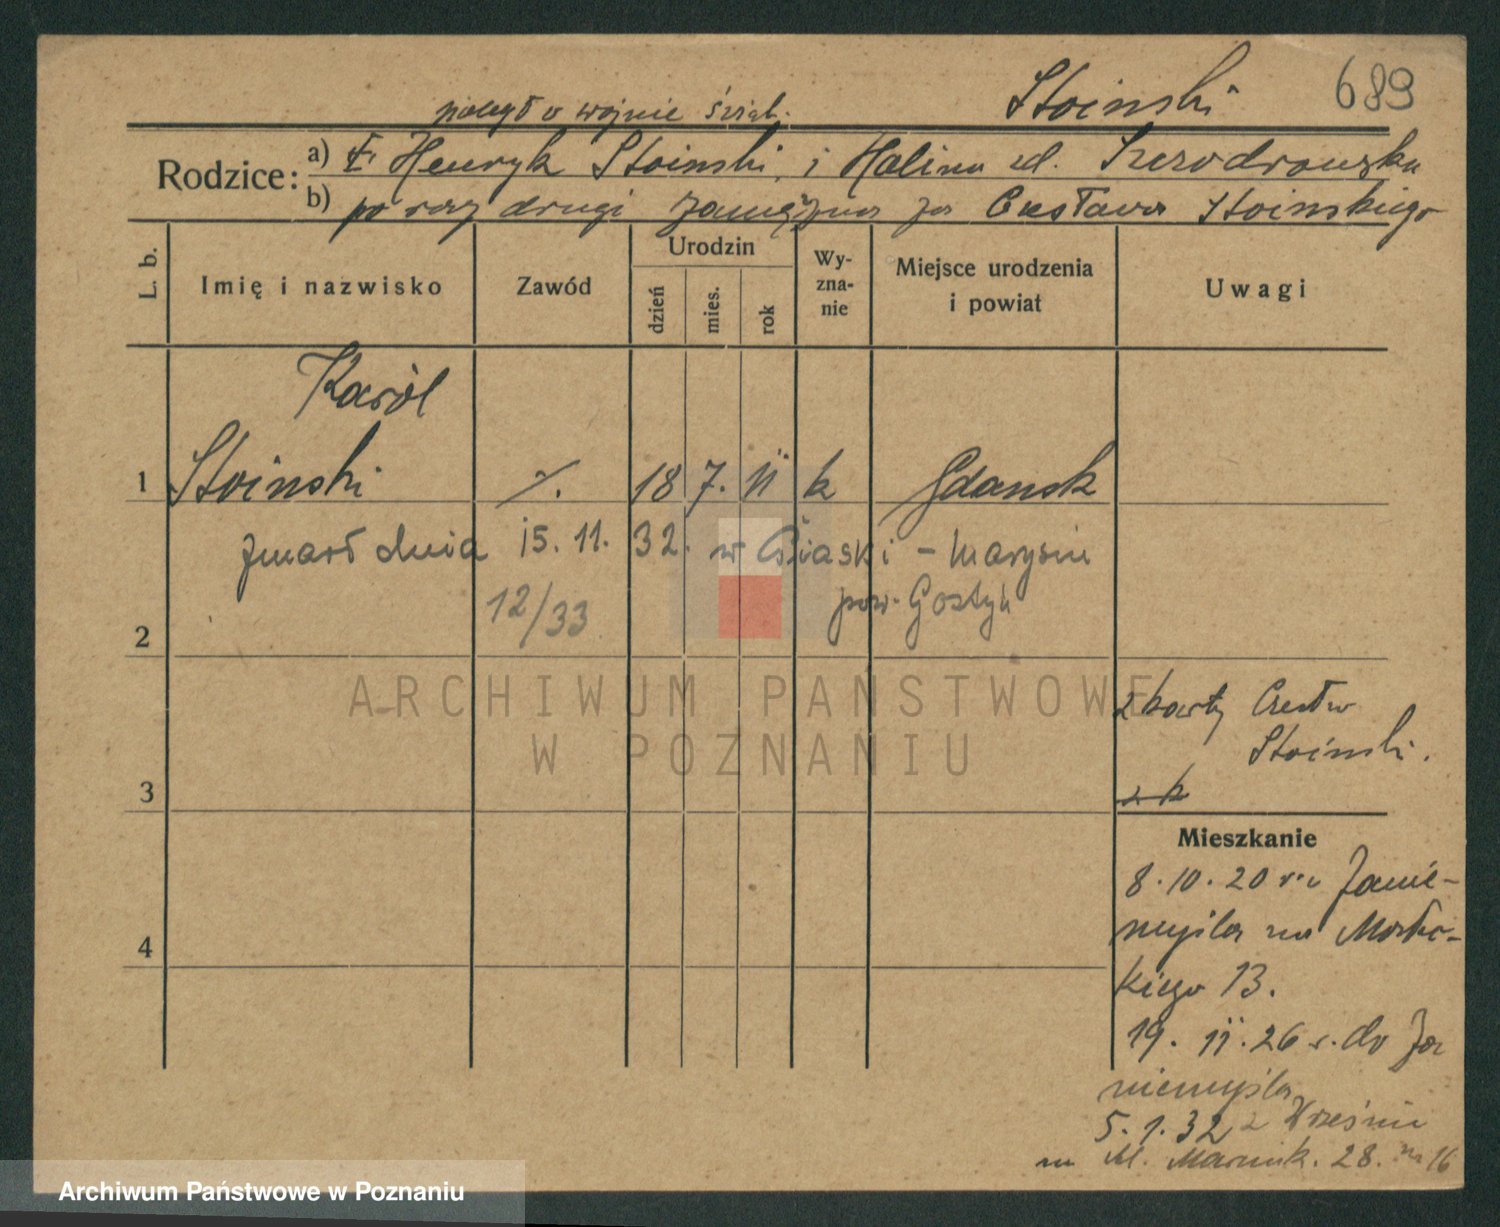 689
Stoinski
poległ w wojnie świat.
Rodzice:
a) Henryk Stoinski i Halina zd.
b) po raz drugi zamężna za Czesława Stoinskiego
L. b.
Imię i nazwisko
Zawód
Urodzin
dzień
mies.
rok
Wy-
zna-
nie
Miejsce urodzenia
i powiat
Uwagi
Karól
1 Stoinski 18 7. 11 k Gdansk
zmarł dnia 15. 11. 32. w Piaski - Marysin
12/33 pow. Gostyń
2
ARCHIWUM PAŃSTWOWE
W POZNANIU
z karty Czesław
Stoinski.
3
z k
Mieszkanie
8.10.20 Zanie-
myśla na
kiego 13.
4
19. 11. 26 r. do Za
niemyśla
5. 1. 32 z Wrześni
na M. 28. 16
Archiwum Państwowe w Poznaniu